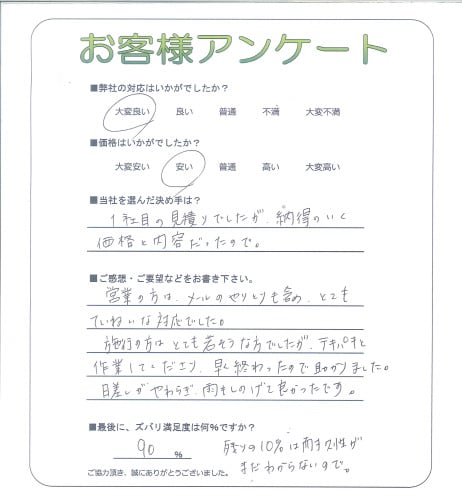 お客様アンケート
■弊社の対応はいかがでしたか?
大変良い 良い 普通 不満 大変不満
■価格はいかがでしたか?
大変安い 安い 普通 高い 大変高い
■当社を選んだ決め手は?
1社目の見積りでしたが、納得のいく
価格と内容だったので。
■ご感想・ご要望などをお書き下さい。
営業の方は、メールのやりとりも含め、とても
ていねいな対応でした。
施工の方はとても若そうな方でしたが、テキパキと
作業してくださり、早く終わったので助かりました。
日差しがやわらぎ、雨もしのげて良かったです。
■最後に、ズバリ満足度は何%ですか?
90 %
残りの10%は耐久性が
まだわからないので。
ご協力頂き、誠にありがとうございました。